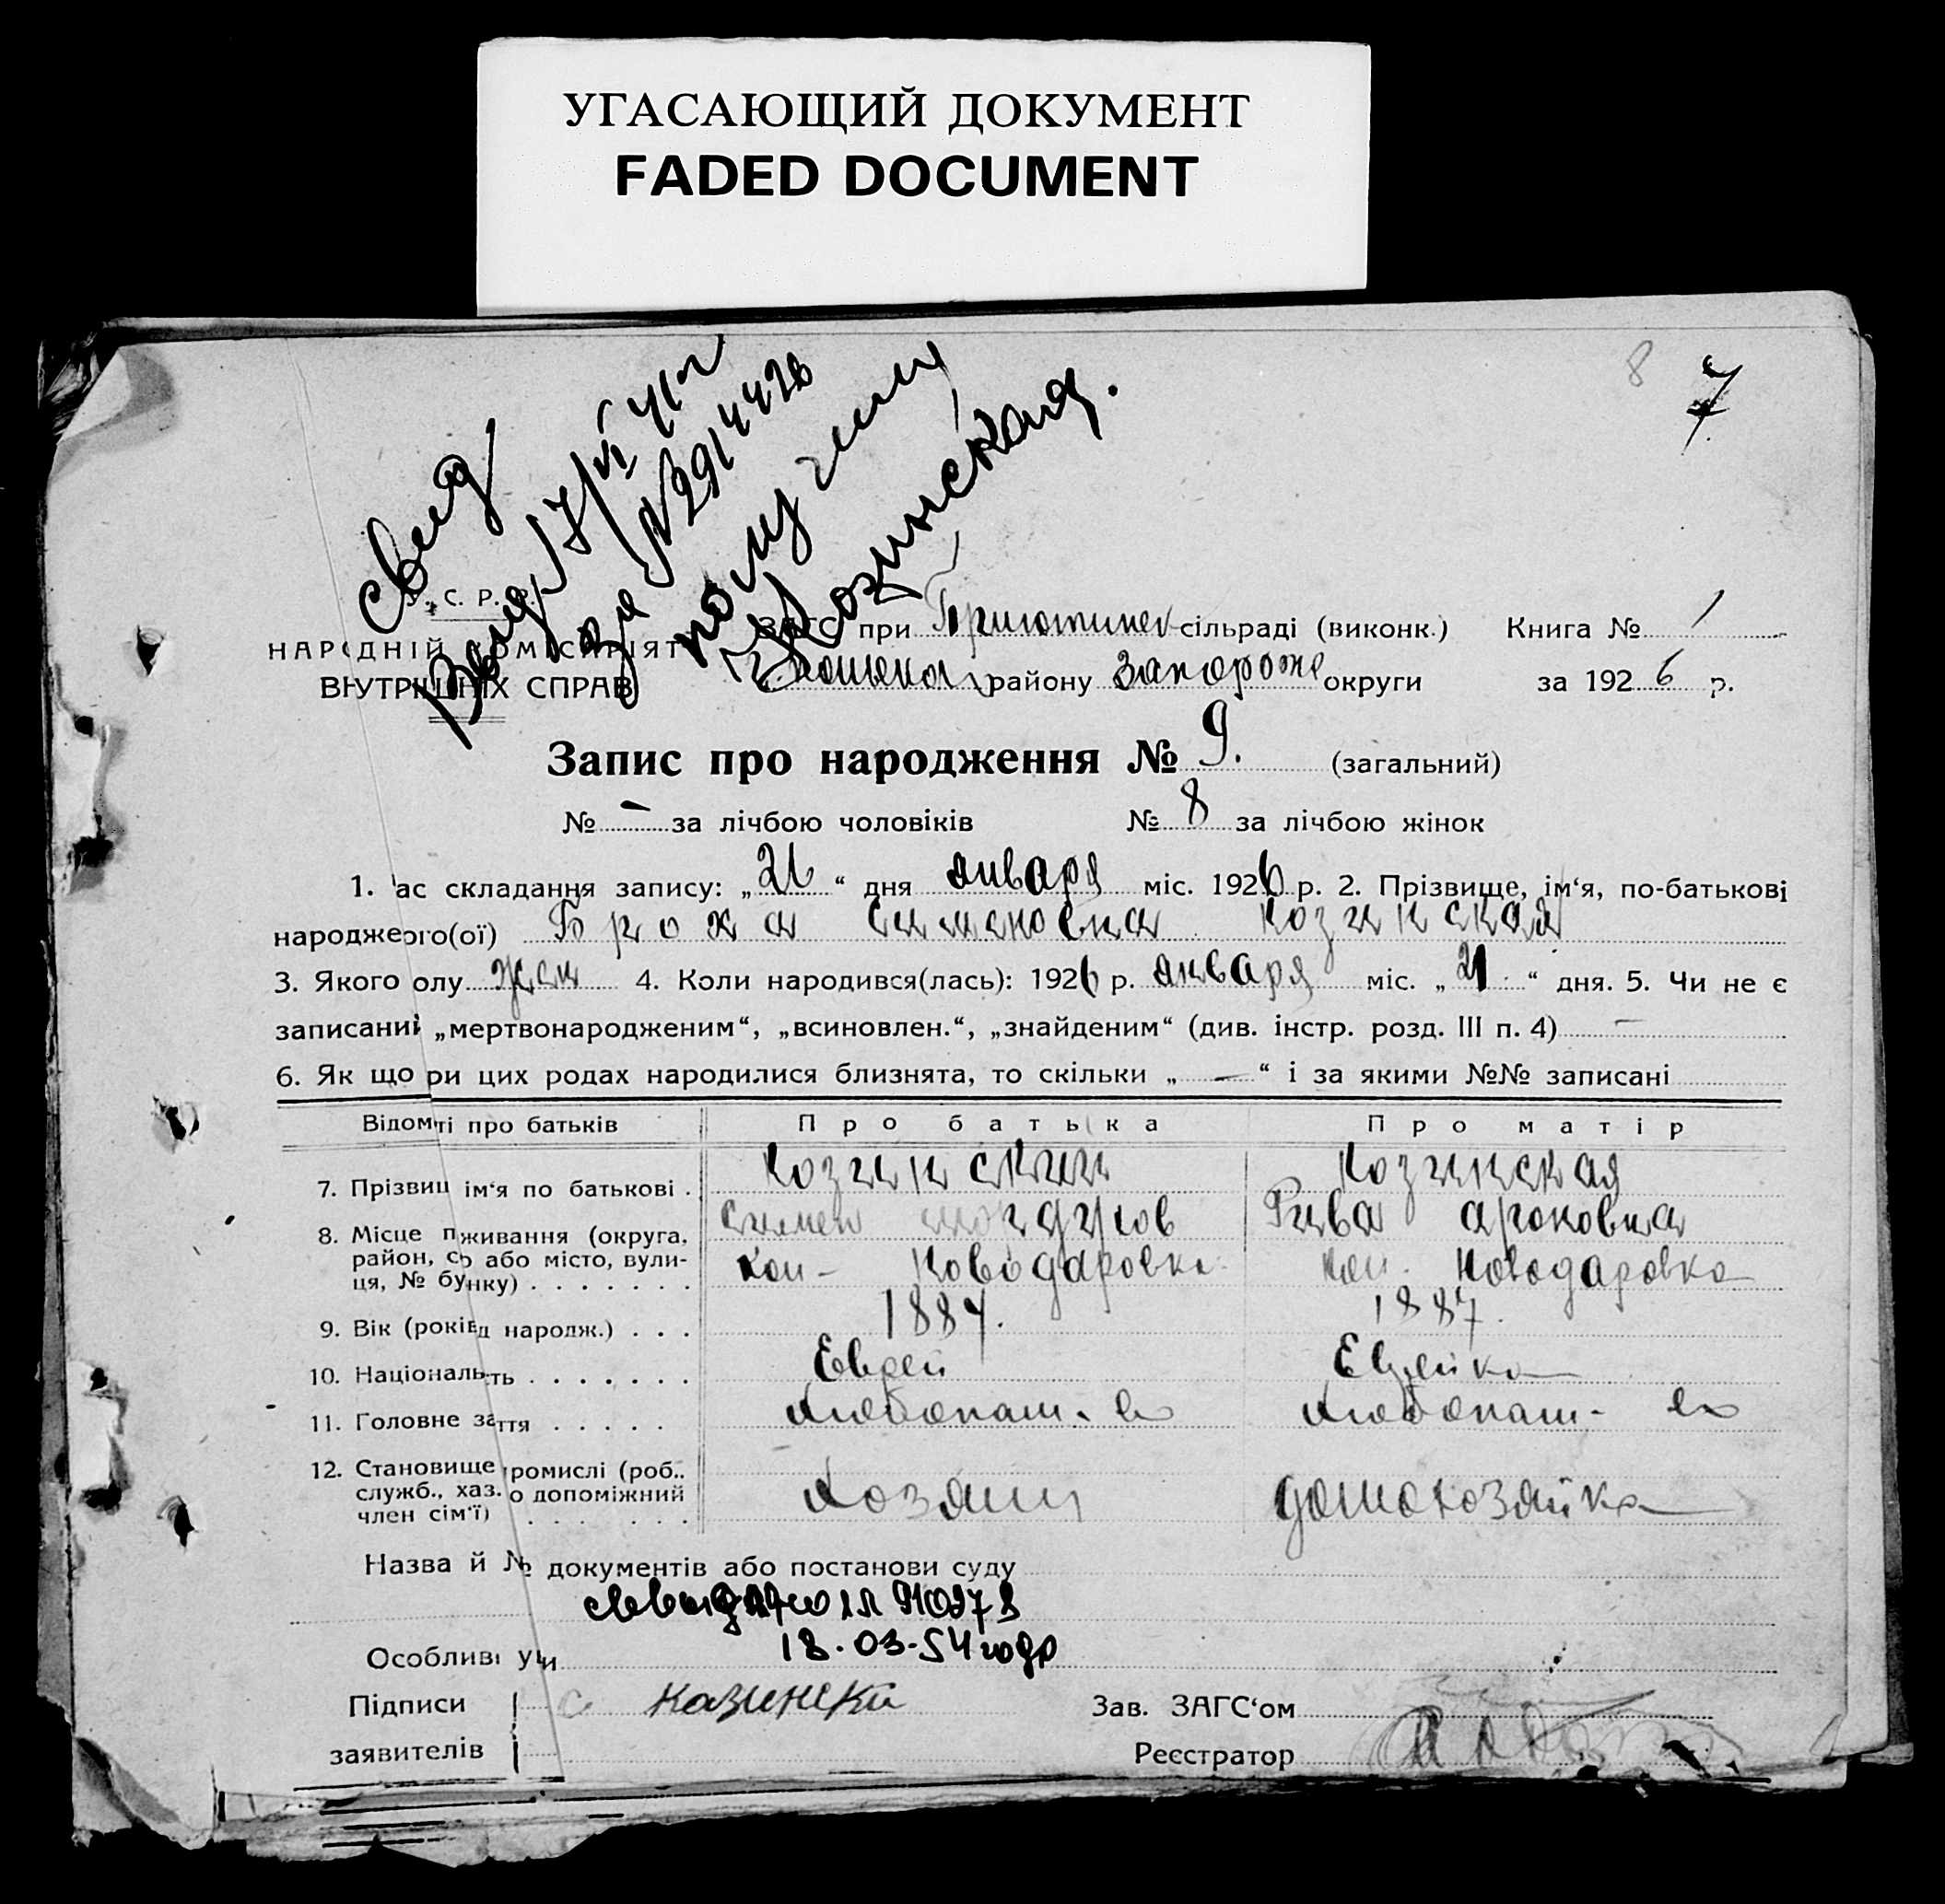 УГАСАЮЩИЙ ДОКУМЕНТ
FADED DOCUMENT
8 7
Свид
Выд 17/VI 41 г
за № 914428
получила
Козинская.
У. С. Р. Р.
НАРОДНІЙ КОМІСАРІЯТ
ВНУТРІШНІХ СПРАВ
ЗАГС при сільраді (виконк.) Книга № 1
району Запорож округи за 1926 р.
Запис про народження № 9. (загальний)
№ – за лічбою чоловіків № 8 за лічбою жінок
1. ас складання запису: „26“ дня января міс. 1926 р. 2. Прізвище, ім‘я, по-батькові
народженого(ої) Броха Симоновна Козинская
3. Якого олу жен 4. Коли народився(лась): 1926 р. января міс. „21“ дня. 5. Чи не є
записаний „мертвонародженим“, „всиновлен.“, „знайденим“ (див. інстр. розд. III п. 4) –
6. Як що ри цих родах народилися близнята, то скільки „–“ і за якими №№ записані
Відомті про батьків Про батька Про матір
7. Прізвищ ім‘я по батькові . Козинский Козинская
8. Місце пживання (округа, Симон Рива Ароновна
район, со або місто, вули- Кол- Новодаровка Кол. Новодаровка
ця, № бунку) . . . . . . .
9. Вік (роківд народж.) . . . 1884. 1887.
10. Національть . . . . . . . Еврей Еврейка
11. Головне заття . . . . . Хлебопаш- во Хлебопаш- во
12. Становище ромислі (роб.,
служб., хаз. о допоміжний Хозяин домохозяйка
член сім‘ї) . . . . . .
Назва й № документів або постанови суду
18.03-54 года
Особливі уи
Підписи С Козинский Зав. ЗАГС‘ом
заявителів Реєстратор